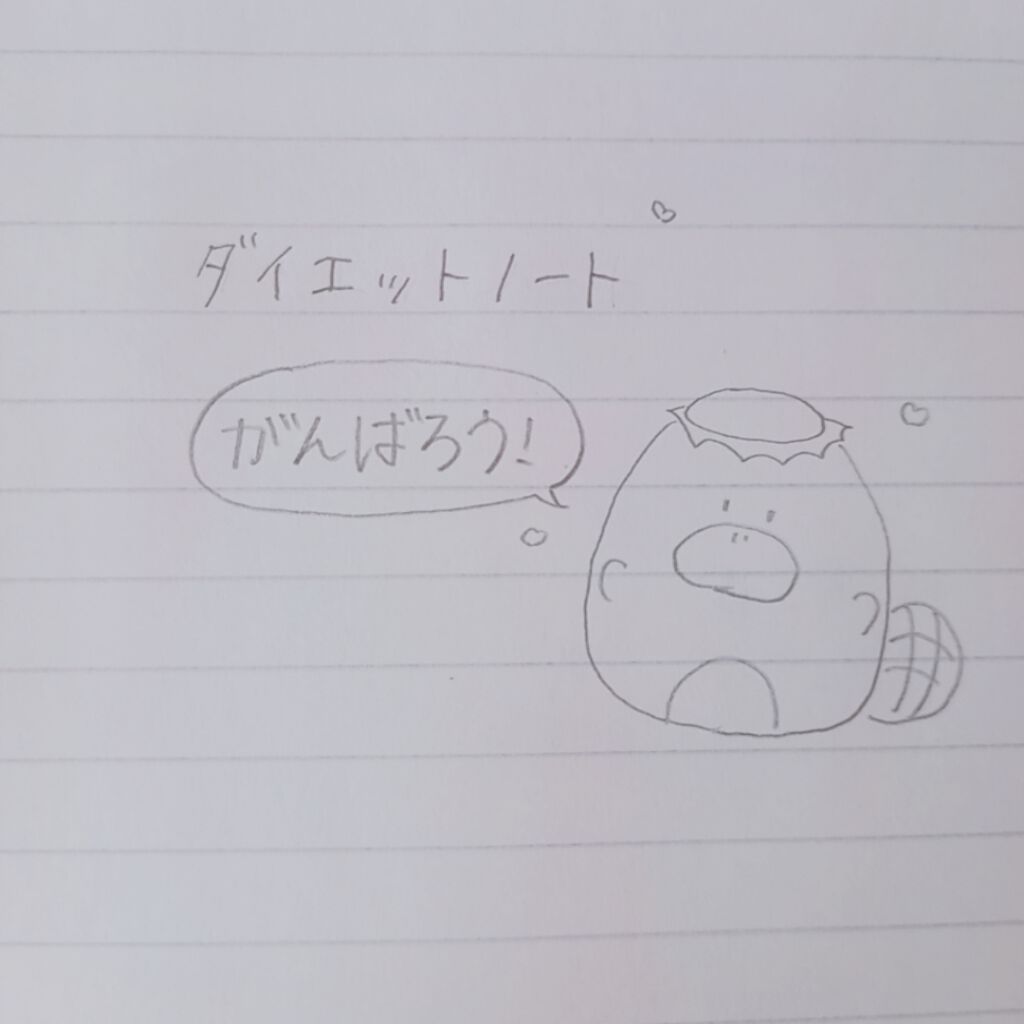 ダイエットノート
がんばろう!